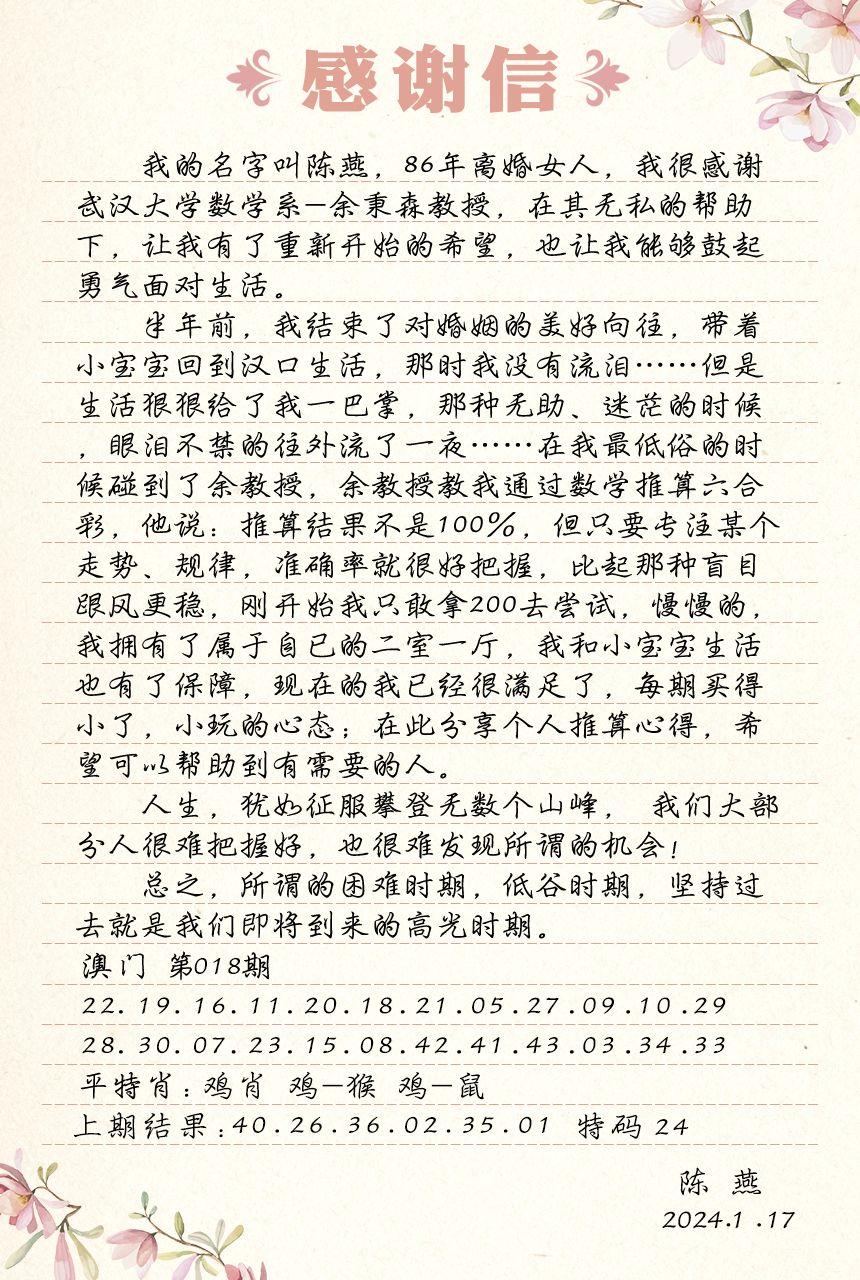 感谢信
我的名字叫陈燕，86年离婚女人，我很感谢
武汉大学数学系—余秉森教授，在其无私的帮助
下，让我有了重新开始的希望，也让我能够鼓起
勇气面对生活。
半年前，我结束了对婚姻的美好向往，带着
小宝宝回到汉口生活，那时我没有流泪……但是
生活狠狠给了我一巴掌，那种无助、迷茫的时候
，眼泪不禁的往外流了一夜……在我最低俗的时
候碰到了余教授，余教授教我通过数学推算六合
彩，他说：推算结果不是100%，但只要专注某个
走势、规律，准确率就很好把握，比起那种盲目
跟风更稳，刚开始我只敢拿200去尝试，慢慢的，
我拥有了属于自已的二室一厅，我和小宝宝生活
也有了保障，现在的我已经很满足了，每期买得
小了，小玩的心态；在此分享个人推算心得，希
望可以帮助到有需要的人。
人生，犹如征服攀登无数个山峰， 我们大部
分人很难把握好，也很难发现所谓的机会！
总之，所谓的困难时期，低谷时期，坚持过
去就是我们即将到来的高光时期。
澳门 第018期
22.19.16.11.20.18.21.05.27.09.10.29
28.30.07.23.15.08.42.41.43.03.34.33
平特肖：鸡肖 鸡—猴 鸡—鼠
上期结果：40.26.36.02.35.01 特码 24
陈 燕
2024.1.17